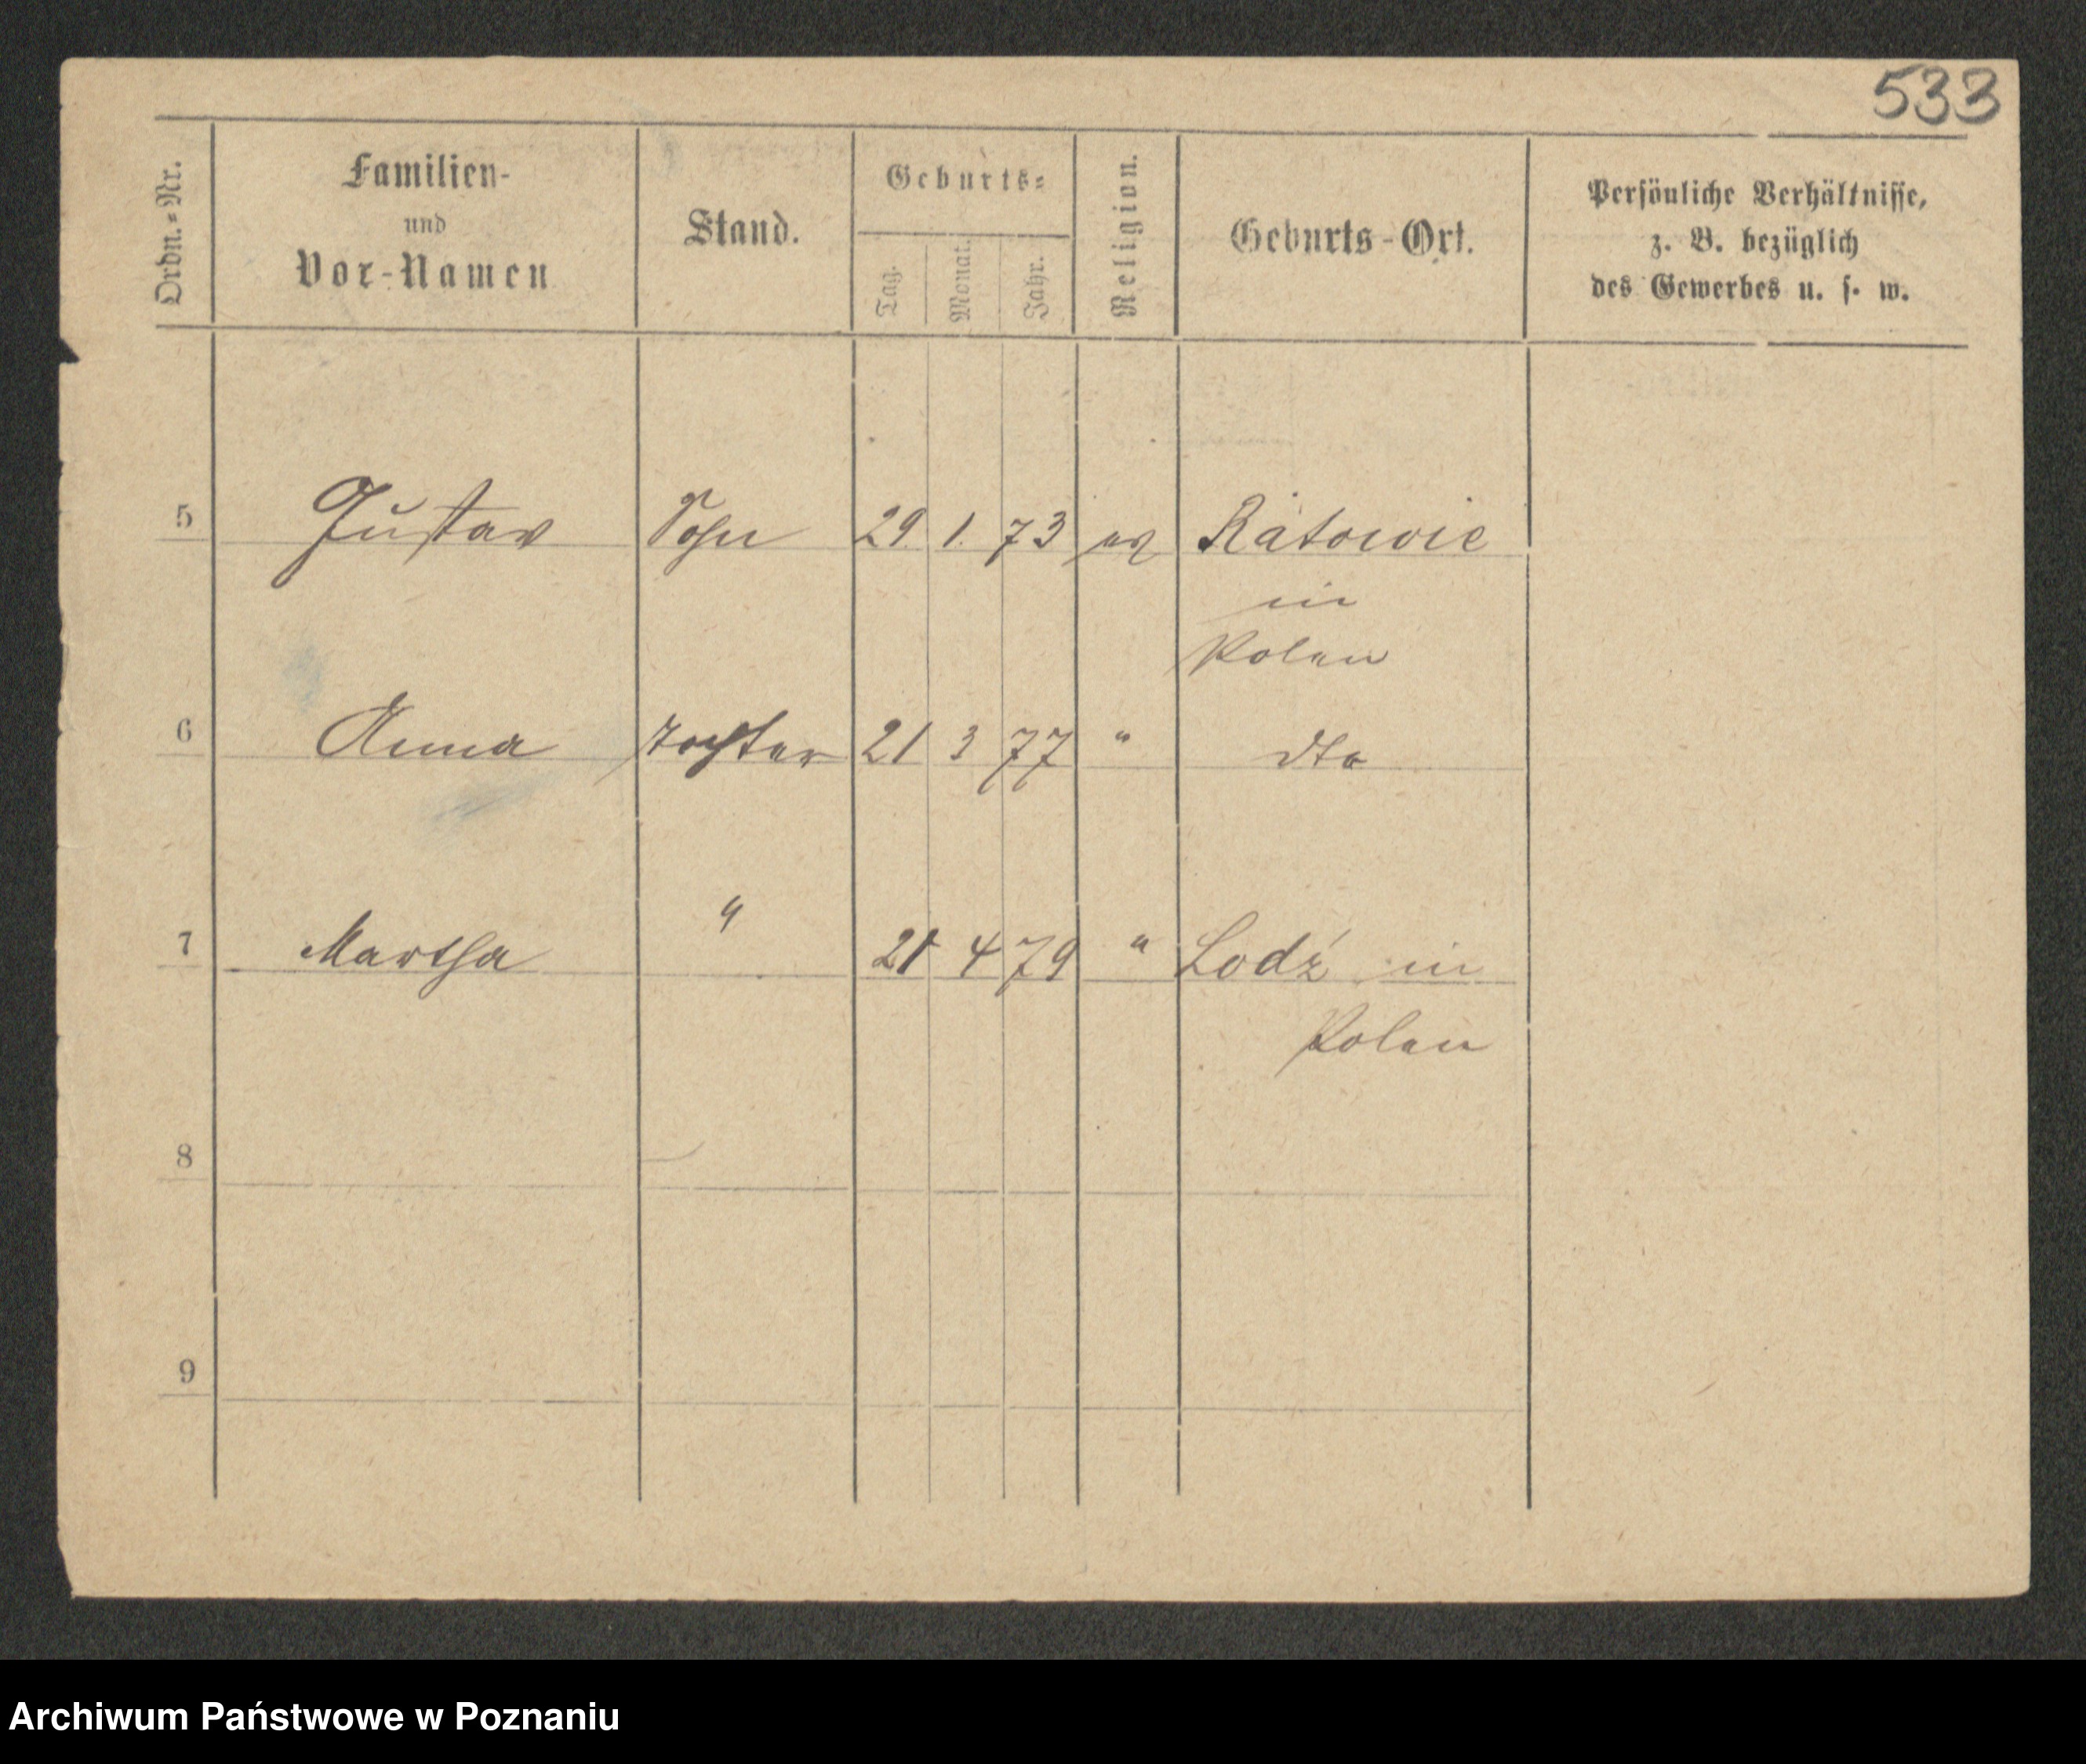 533
Ordn.-Nr.
Familien-
und
Vor-Namen
Stand.
Geburts-
Tag.
Monat.
Jahr.
Religion.
Geburts-Ort.
Persönliche Verhältnisse,
z. B. bezüglich
des Gewerbes u. s. w.
5 Gustav Sohn 29. 1. 73 ev Ratowie
in
Polen
6 Anna Tochter 21 3 77 " dto
7 Martha " 21 4 79 " Lodź in
Polen
8
9
Archiwum Państwowe w Poznaniu